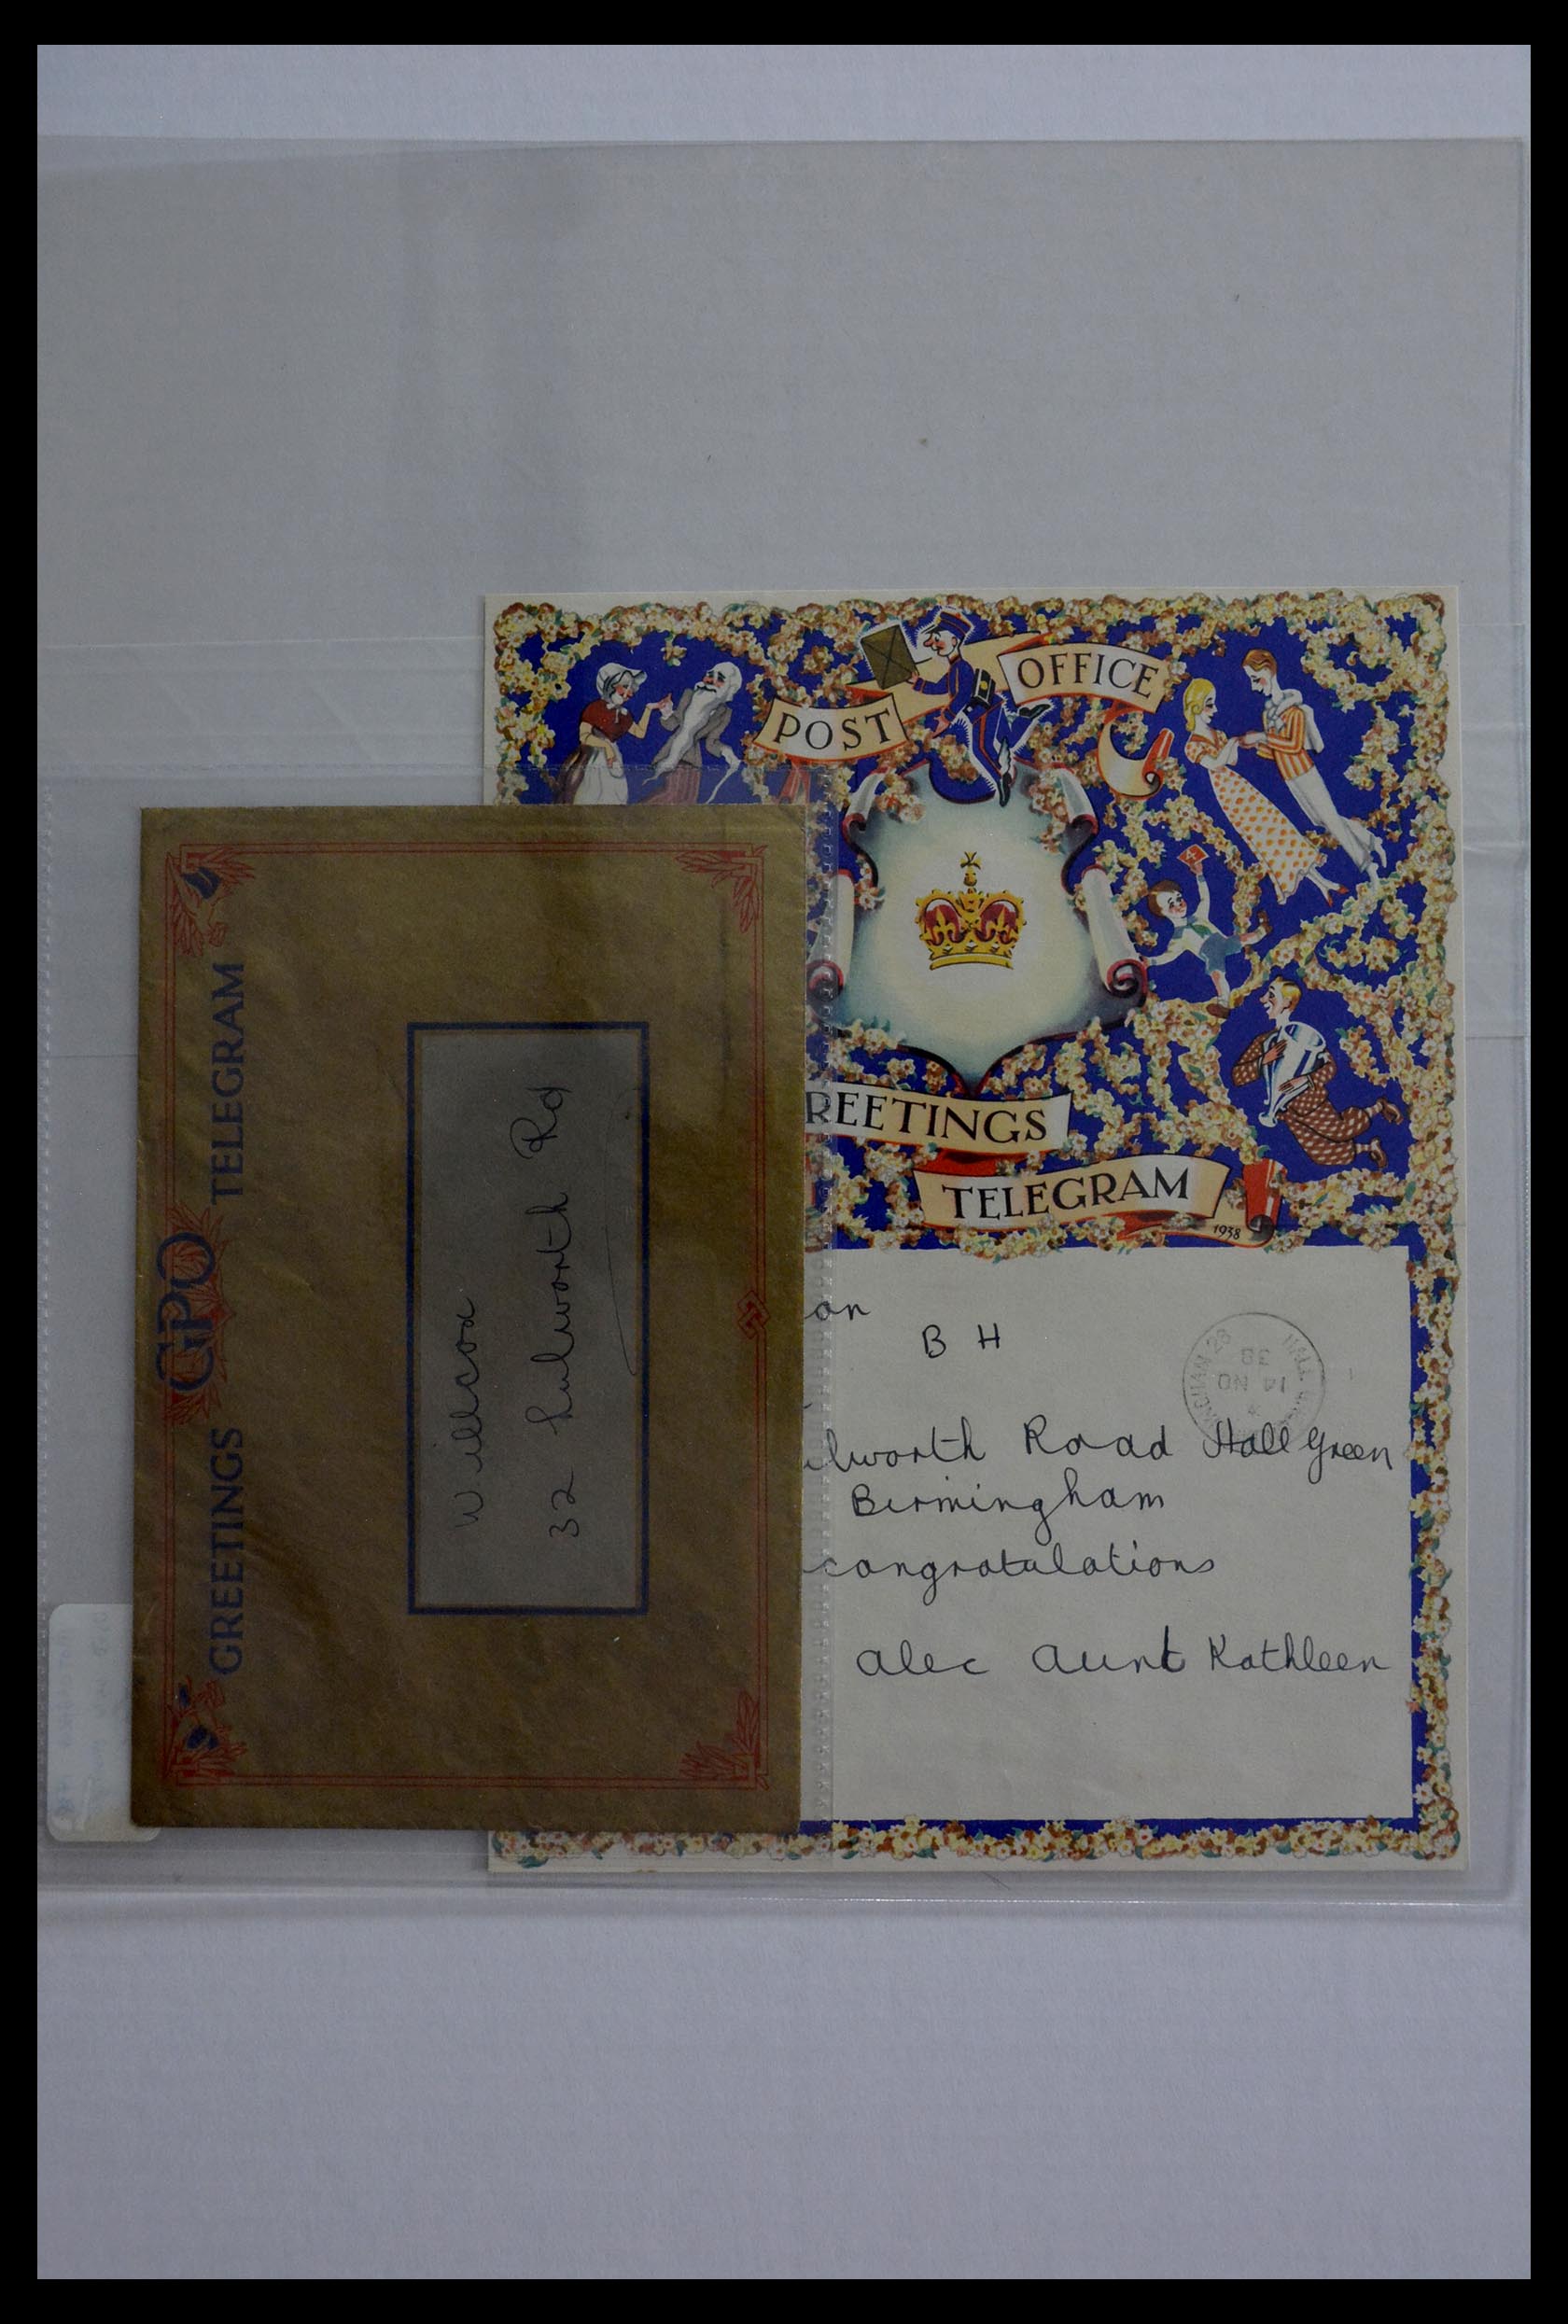 GREETINGS GPO TELEGRAM
Willcox
32 Lulworth Rd
POST OFFICE
REETINGS
TELEGRAM
1938
on
B H
14 NO
39
lworth Road Hall Green
Birmingham
congratulations
Alec Aunt Kathleen